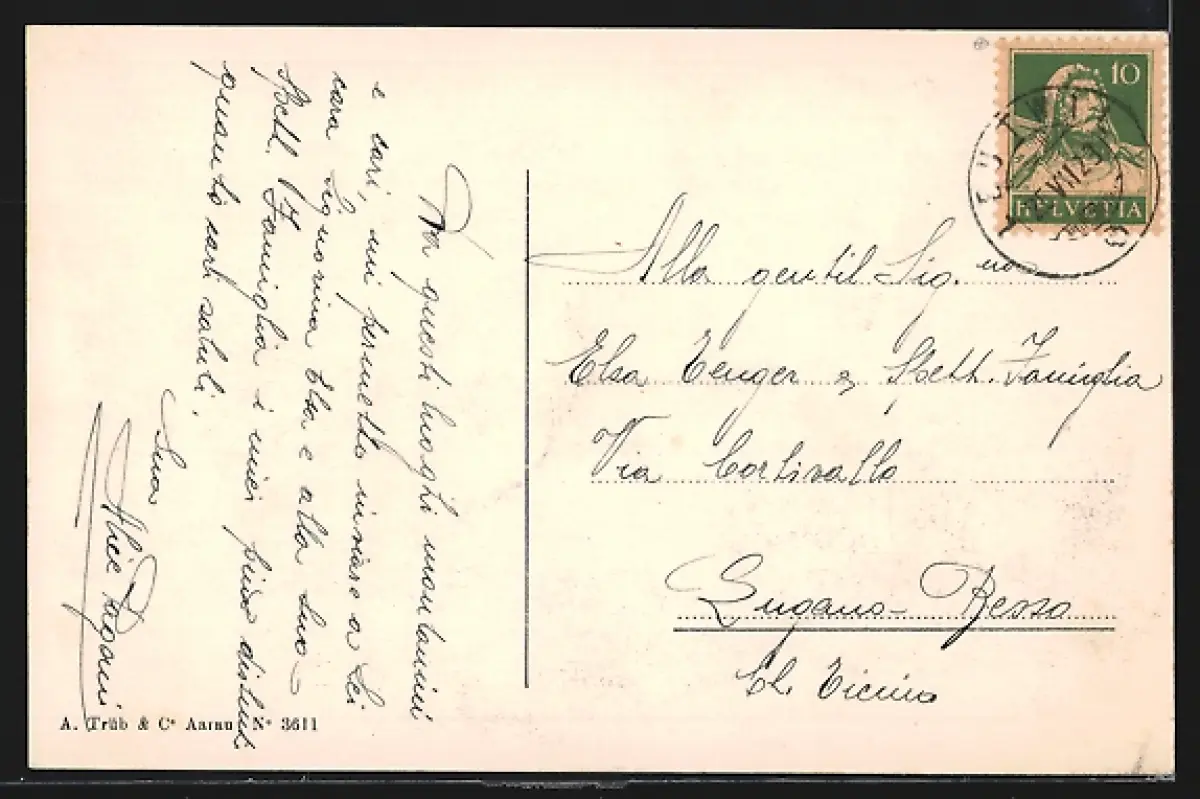 Da questi luoghi montanini
e cari, mi permetto inviare a Lei
cara Signorina Elsa e alla Sua
Spett. Famiglia i miei più distinti
quanto cari saluti.
Sua
Alice Pagani
Alla gentil Sig.na
Elsa Zenger & Spett. Famiglia
Via Cortivallo
Lugano-Besso
Ct. Ticino
10
HELVETIA
A. Trüb & Cº Aarau Nº 3611